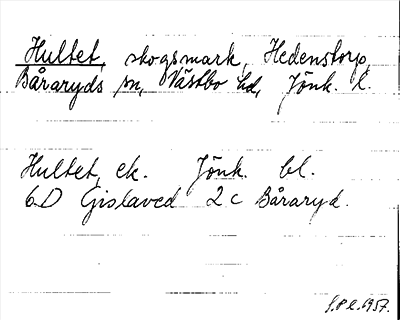 Hultet, skogsmark, Hedenstorp,
Båraryds sn, Västbo hd, Jönk. l.
Hultet, ek. Jönk. bl.
6D Gislaved 2c Båraryd.
1957.